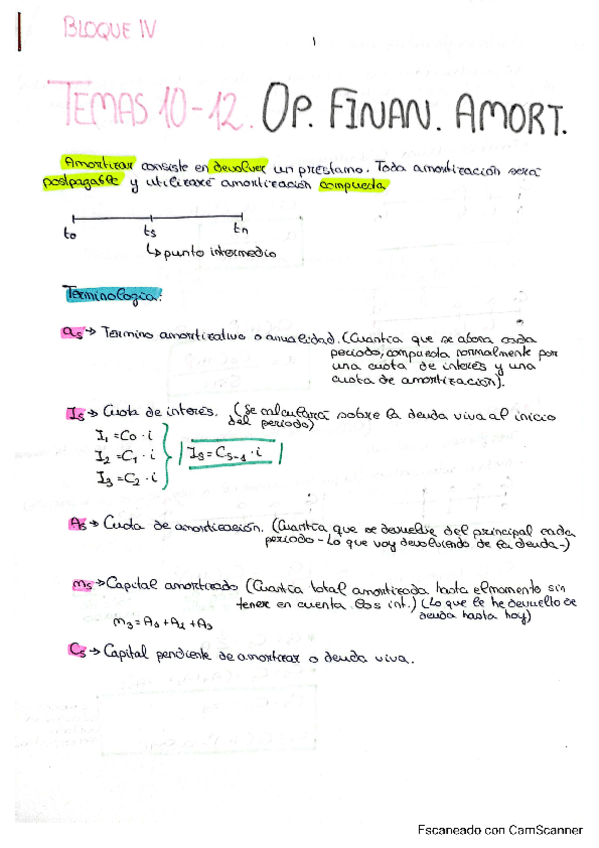 BLOQUE IV
1
TEMAS 10-12. OP. FINAN. AMORT.
Amortizar consiste en devolver un préstamo. Toda amortización será
postpagable y utilizaré amortización compuesta
to ts tn
↳ punto intermedio
Terminología:
as → Término amortizativo o anualidad. (Cuantía que se abona cada
período, compuesta normalmente por
una cuota de interés y una
cuota de amortización).
Is → Cuota de interés. (se calculará sobre la deuda viva al inicio
del período)
I1 = C0 · i
I2 = C1 · i
Is = Cs-1 · i
I3 = C2 · i
As → Cuota de amortización. (Cuantía que se devuelve del principal cada
período - Lo que voy devolviendo de la deuda -)
ms → Capital amortizado (Cuantía total amortizada hasta el momento sin
tener en cuenta los int.) (Lo que le he devuelto de
deuda hasta hoy)
m3 = A1 + A2 + A3
Cs → Capital pendiente de amortizar o deuda viva.
Escaneado con CamScanner